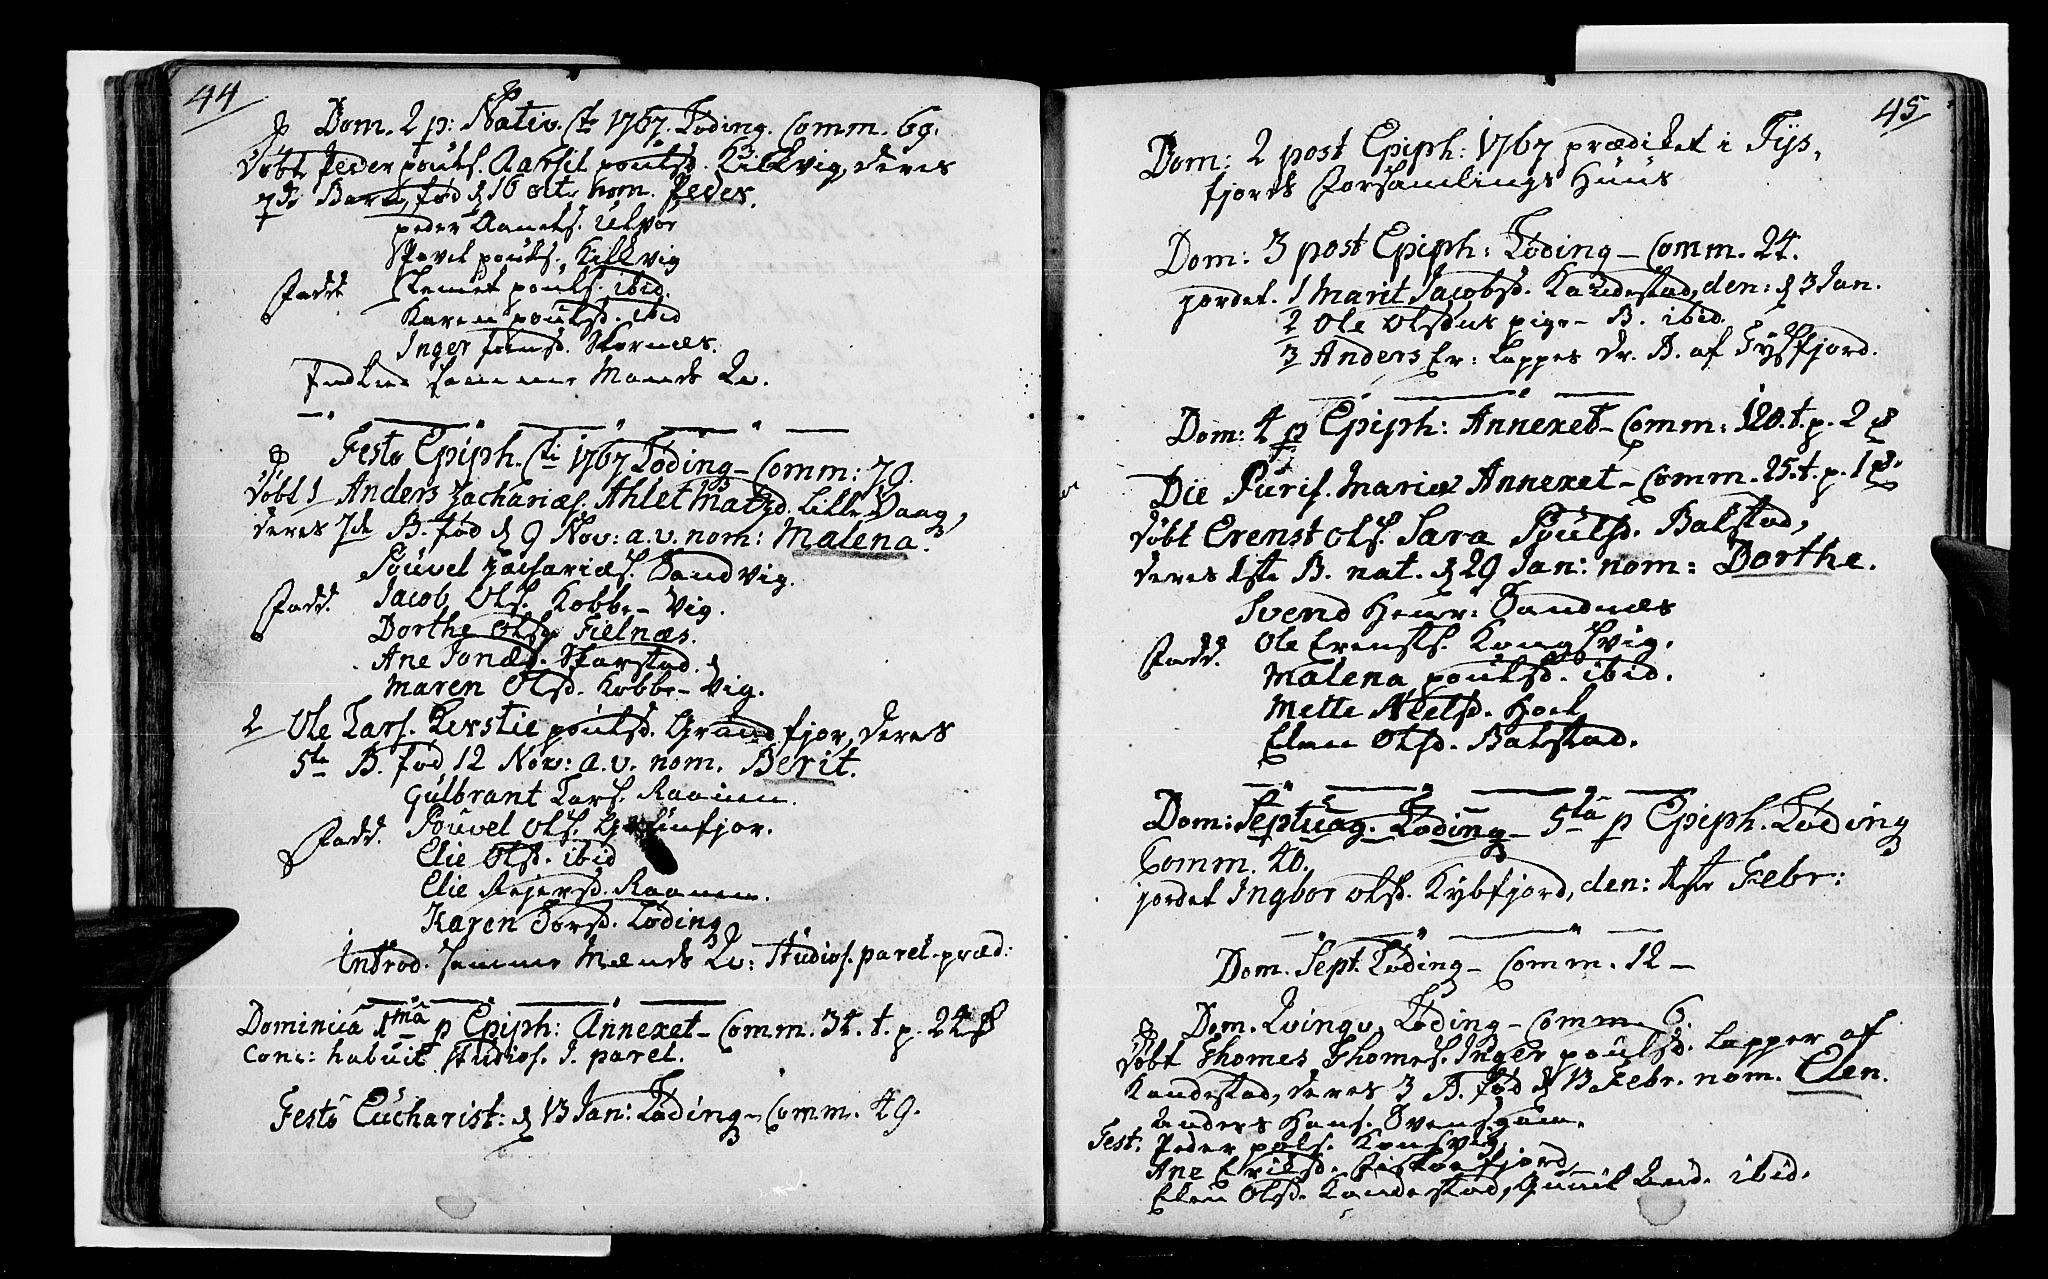 44
Dom. 2 p: Nativ. Cti 1767. Løding. Comm. 69.
Døbt Peder poüls. poülsd. Kilvig, deres
7de Barn, fød d 16 oct. nom. Peder.
peder Utvor
Povel poüls. Kilvig
Fadd. poüls. ibid.
Karen poülsd. ibid
Inger Jonsd. Stornæs.
Indled samme Mands Qv.
Festo Epiph. Cti 1767 Løding - Comm: 70.
Døbt 1 Anders Zachariæs. Ahlet Matzd. Lille Vaag,
deres 7de B. fød d 9 Nov: a. v. nom: Malena.
Poüvel Zachariæs. Sandvig.
Fadd. Jacob Ols. Kobbe-Vig.
Dorthe Olsd. Fielnæs.
Ane Jonæd. Skarstad.
Maren Olsd. Kobbe-Vig.
2 Ole Lars. Kerstie poülsd. Grundfjor, deres
5te B. fød 12 Nov: a. v. nom. Berit.
Gulbrant Lars. Raanen.
Fadd. Poüvel Ols. Grünfjor.
Elie Olsd. ibid
Elie Rejersd. Raanen.
Karen Torsd. Løding
Introd. samme Mænds Qv: Studios. parel. præd:
Dominica 1ma p Epiph: Annexet - Comm. 34. t. p. 24 ß
Conc: habuit studios. J. parel.
Festo Eucharist: d 13 Jan: Løding - Comm. 49.
45
Dom: 2 post Epiph: 1767 prædiket i Tys-
fjords Forsamlings Huus
Dom: 3 post Epiph: Løding - Comm. 24.
jordet. 1 Marit Jacobsd. Kandestad, den: d 3 Jan.
2 Ole Olsens pige - B. ibid.
3 Anders Er: Lappes Dr. B. af Tysfjord.
Dom: 4 p Epiph: Annexet - Comm: 120. t. p. 2
Die Purif. Mariæ Annexet - Comm. 25. t. p. 1
Døbt Erenst Ols. Sara Poülsd. Balstad,
deres 1ste B. nat. d 29 Jan: nom: Dorthe.
Svend Henr: Sandnæs
Fadd. Ole Erensts. Kongsvig.
Malena poülsd. ibid.
Mette Nielsd. Hoel
Elen Olsd. Balstad.
Dom: Septuag. Løding - 5ta p Epiph. Løding
Comm. 40.
jordet Ingbor Olsd. Kybfjord, den: 1ste Febr:
Dom. Sept. Løding - Comm. 12 -
Dom. Qvinqv. Løding - Comm 6.
Døbt Thomes Thomes. Inger poülsd. Lapper af
Kandestad, deres 3 B. fød d 13 Febr. nom. Elen.
Anders Hans.
Test: Peder pols. Konsvig
Ane Erilsd. fjord
Elen Olsd. Kandestad, Gunil ibid.